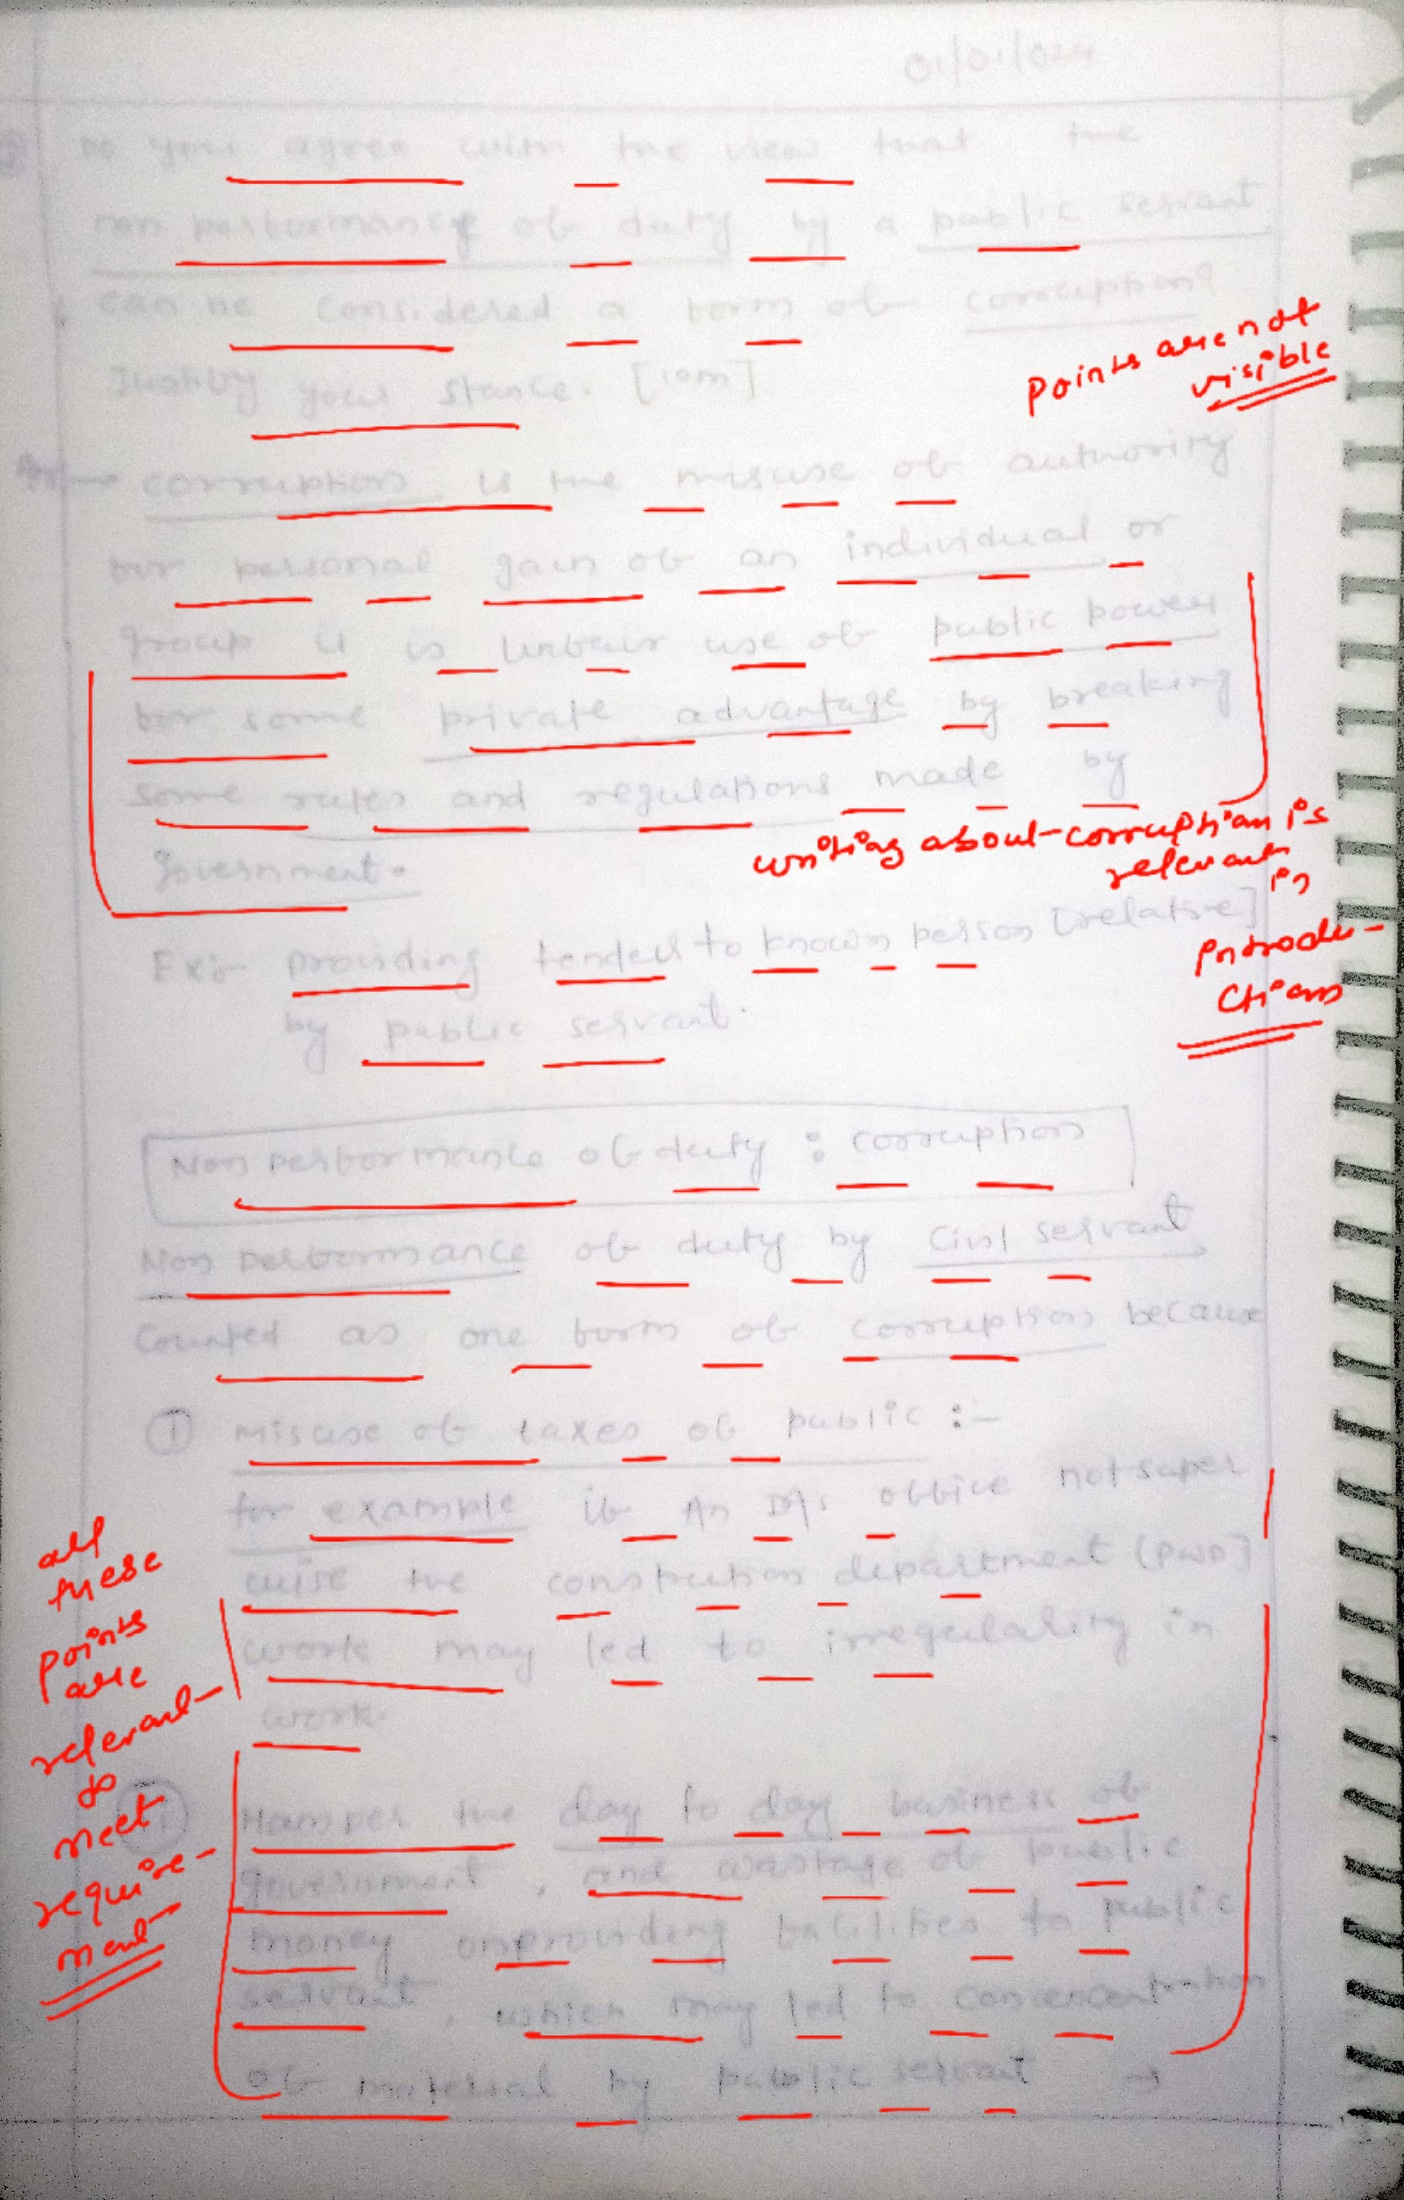 01/01/024
Do you agree with the view that the
non performance of duty by a public servant
can be considered a form of corruption?
Justify your stance. [10m]
points are not
visible
corruption is the misuse of authority
for personal gain of an individual or
group it is unfair use of public power
for some private advantage by breaking
some rules and regulations made by
government.
writing about corruption is
relevant
in
introdu-
ction
Ex:- providing tender to known person [relative]
by public servant.
Non performance of duty : corruption
Non performance of duty by civil servant
Counted as one form of corruption because
① misuse of taxes of public :-
for example if An DM office not super
wise the constrution department (PWD)
work may led to irregularity in
work.
all
these
points
are
relevant
&
meet
require-
ment
Hamper the day to day business of
government, and wastage of public
money on providing facilities to public
servant, which may led to
of material by public servant →